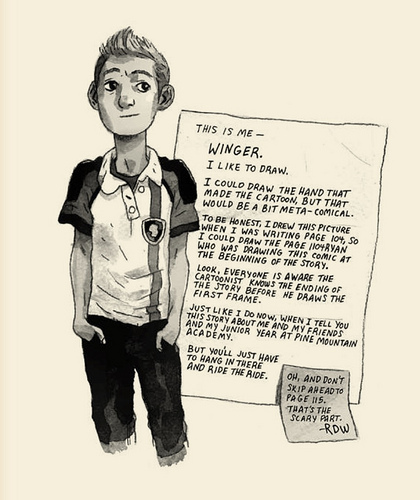 THIS IS ME —
WINGER.
I LIKE TO DRAW.
I COULD DRAW THE HAND THAT
MADE THE CARTOON, BUT THAT
WOULD BE A BIT META-COMICAL.
TO BE HONEST, I DREW THIS PICTURE
WHEN I WAS WRITING PAGE 104, SO
I COULD DRAW THE PAGE 104 RYAN
WHO WAS DRAWING THIS COMIC AT
THE BEGINNING OF THE STORY.
LOOK, EVERYONE IS AWARE THE
CARTOONIST KNOWS THE ENDING OF
THE STORY BEFORE HE DRAWS THE
FIRST FRAME.
JUST LIKE I DO NOW, WHEN I TELL YOU
THIS STORY ABOUT ME AND MY FRIENDS
AND MY JUNIOR YEAR AT PINE MOUNTAIN
ACADEMY.
BUT YOU'LL JUST HAVE
TO HANG IN THERE
AND RIDE THE RIDE.
OH, AND DON'T
SKIP AHEAD TO
PAGE 115.
THAT'S THE
SCARY PART.
-RDW